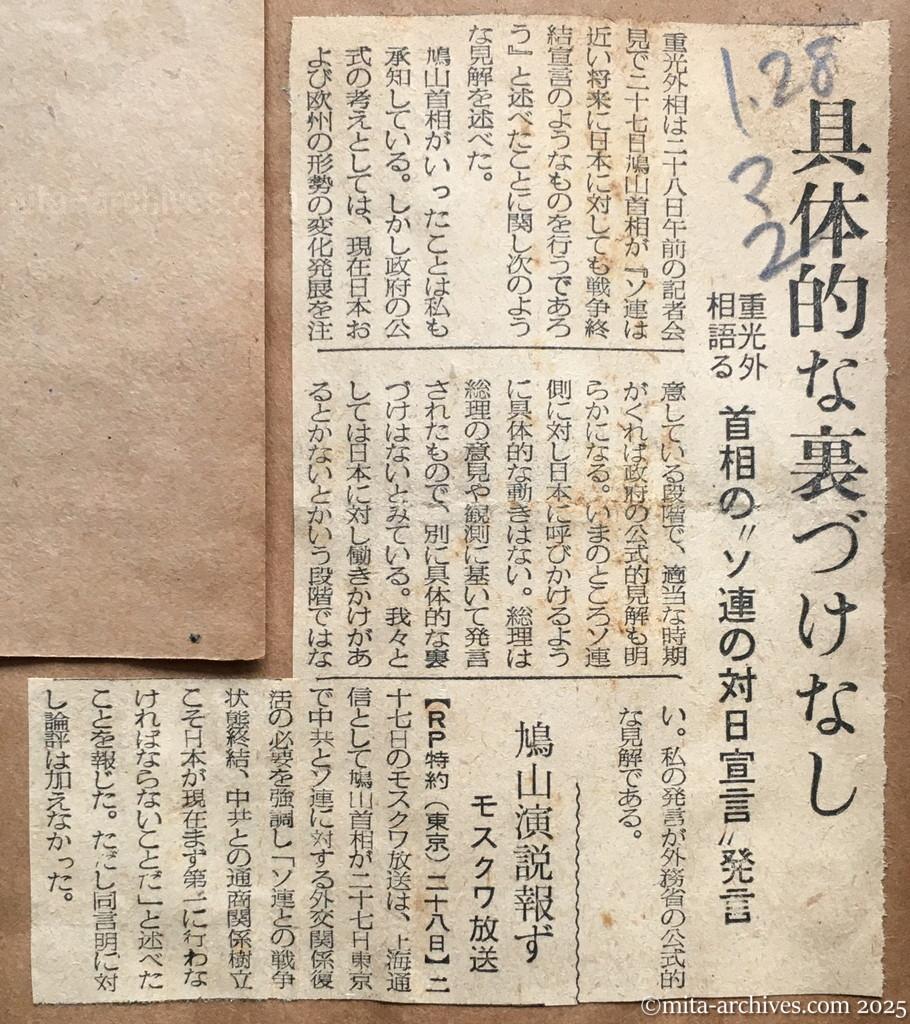 具体的な裏づけなし
1.28
3
2
重光外
相語る
首相の〃ソ連の対日宣言〃発言
重光外相は二十八日午前の記者会
見で二十七日鳩山首相が『ソ連は
近い将来に日本に対しても戦争終
結宣言のようなものを行うであろ
う』と述べたことに関し次のよう
な見解を述べた。
鳩山首相がいったことは私も
承知している。しかし政府の公
式の考えとしては、現在日本お
よび欧州の形勢の変化発展を注
意している段階で、適当な時期
がくれば政府の公式的見解も明
らかになる。いまのところソ連
側に対し日本に呼びかけるよう
に具体的な動きはない。総理は
総理の意見や観測に基いて発言
されたもので、別に具体的な裏
づけはないとみている。我々と
しては日本に対し働きかけがあ
るとかないとかいう段階ではな
い。私の発言が外務省の公式的
な見解である。
鳩山演説報ず
モスクワ放送
【RP特約(東京)二十八日】二
十七日のモスクワ放送は、上海通
信として鳩山首相が二十七日東京
で中共とソ連に対する外交関係復
活の必要を強調し「ソ連との戦争
状態終結、中共との通商関係樹立
こそ日本が現在まず第一に行わな
ければならないことだ」と述べた
ことを報じた。ただし同言明に対
し論評は加えなかった。
©mita-archives.com 2025